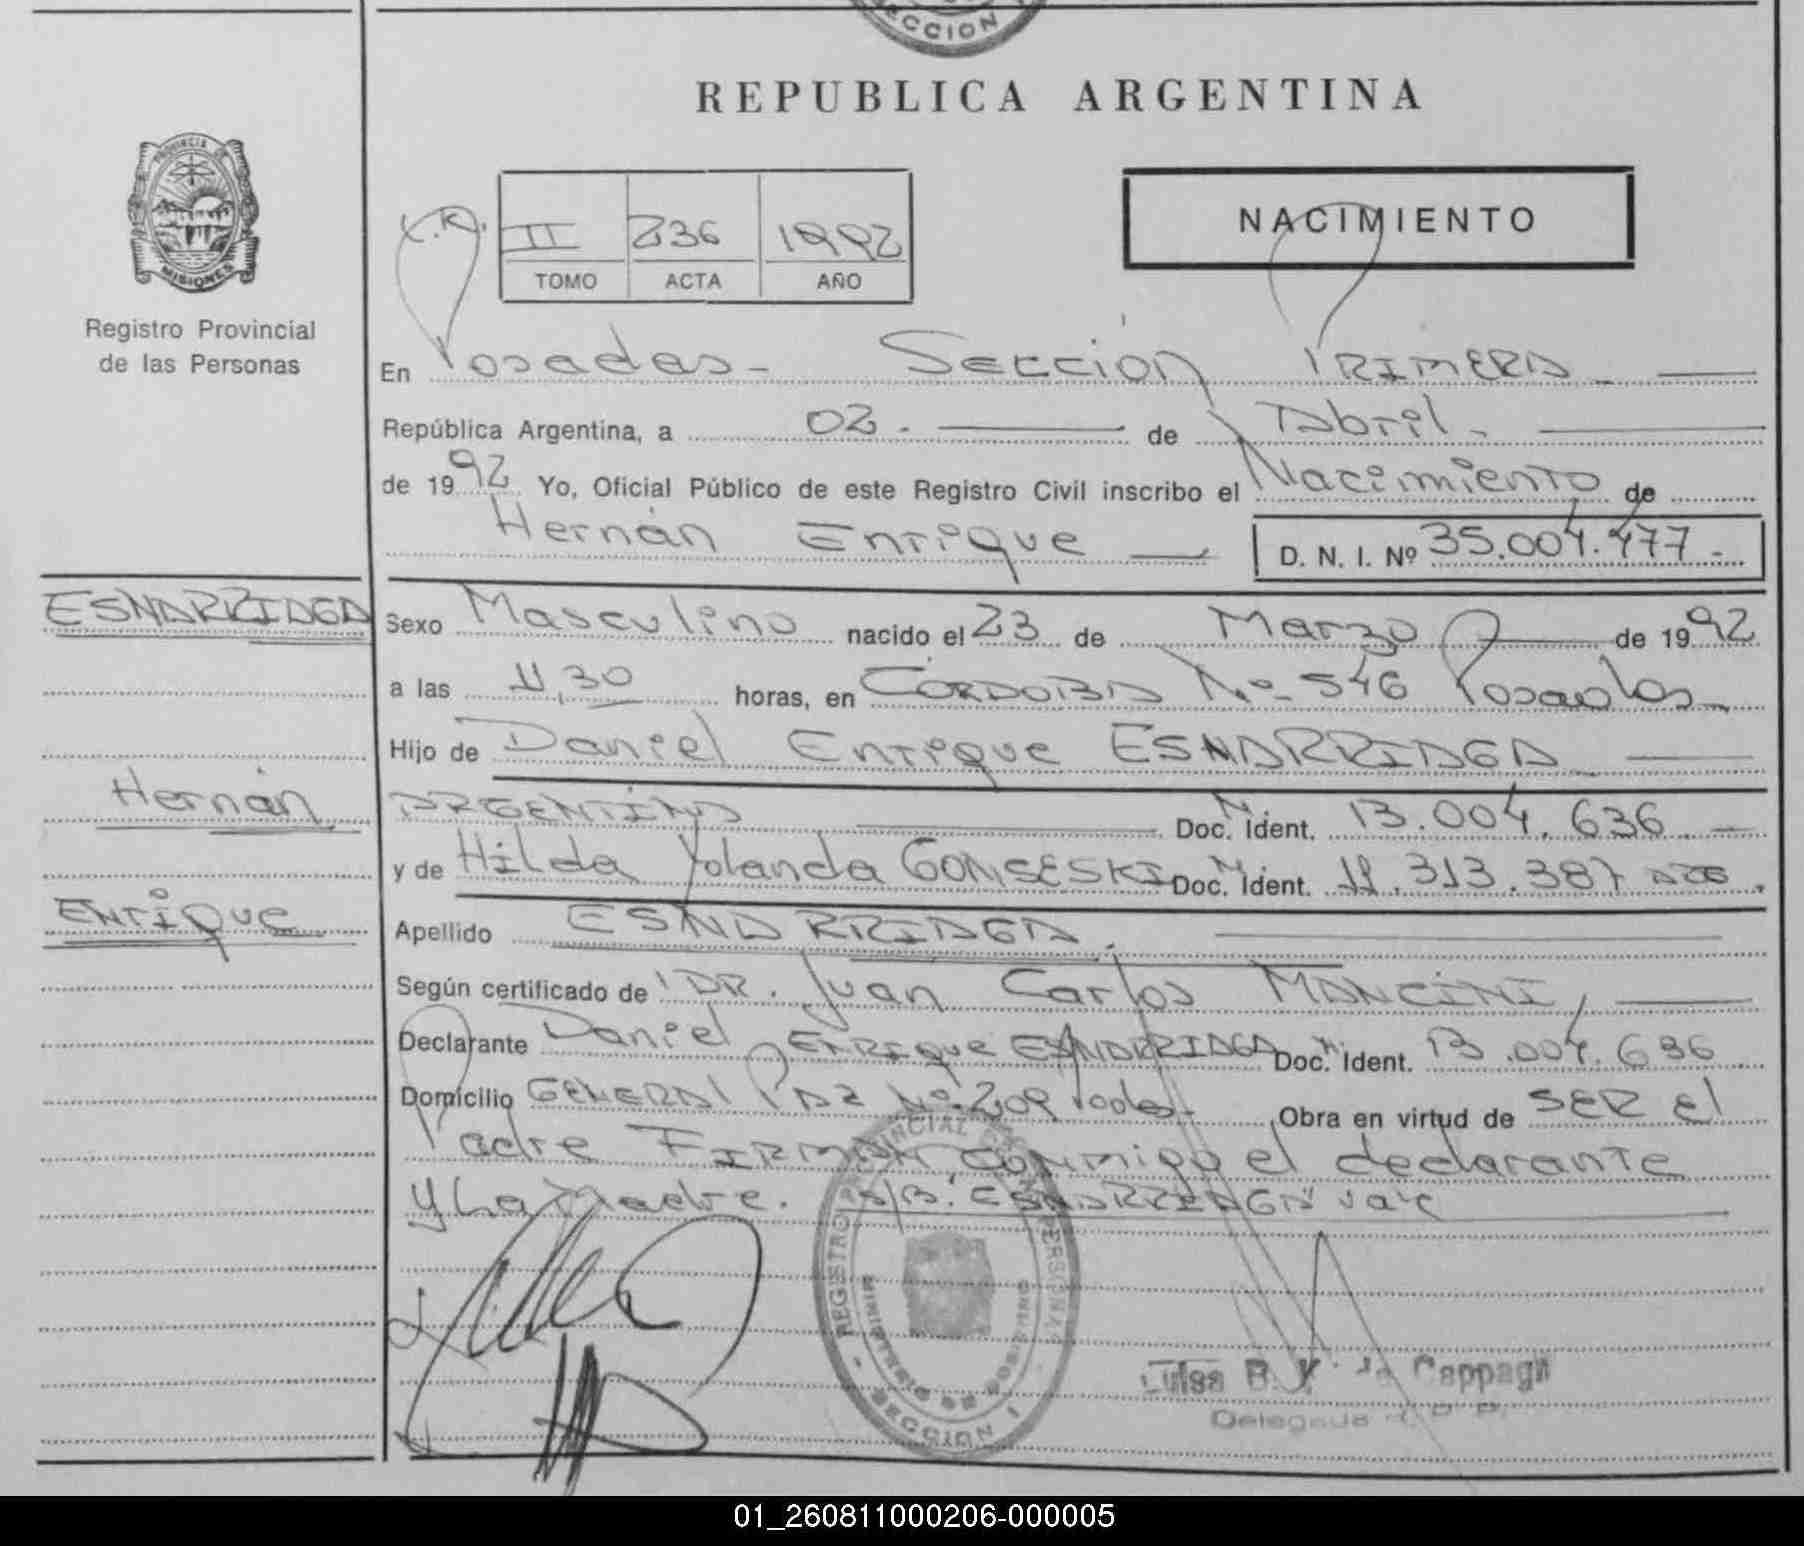 SECCION
REPUBLICA ARGENTINA
PROVINCIA DE
MISIONES
Registro Provincial
de las Personas
II 236 1992
TOMO ACTA AÑO
NACIMIENTO
En Posadas- Sección PRIMERA
República Argentina, a 02.- de Abril.-
de 1992 Yo, Oficial Público de este Registro Civil inscribo el Nacimiento de
Hernán Enrique D. N. I. Nº 35.004.477.-
ESNARRIAGA
Hernán
Enrique
Sexo Masculino nacido el 23 de Marzo de 1992
a las 11,30 horas, en CORDOBA Nº 546 Posadas
Hijo de Daniel Enrique ESNARRIAGA
ARGENTINO Doc. Ident. 13.004.636.-
y de Hilda Yolanda GONSESKI Doc. Ident. 11.313.387
Apellido ESNARRIAGA.
Según certificado de DR. Juan Carlos MANCINI,
Declarante Daniel ENRIQUE ESNARRIAGA Doc. Ident. 13.004.636
Domicilio GENERAL PAZ Nº 209 Obra en virtud de SER El
Padre FIRMAN conmigo el declarante
y La Madre. s/b: "ESNARRIAGA" vale
REGISTRO PROVINCIAL DE LAS PERSONAS
MINISTERIO DE GOBIERNO
SECCION I
Luisa B. V. de Cappagli
Delegada R. P. P.
01_260811000206-000005